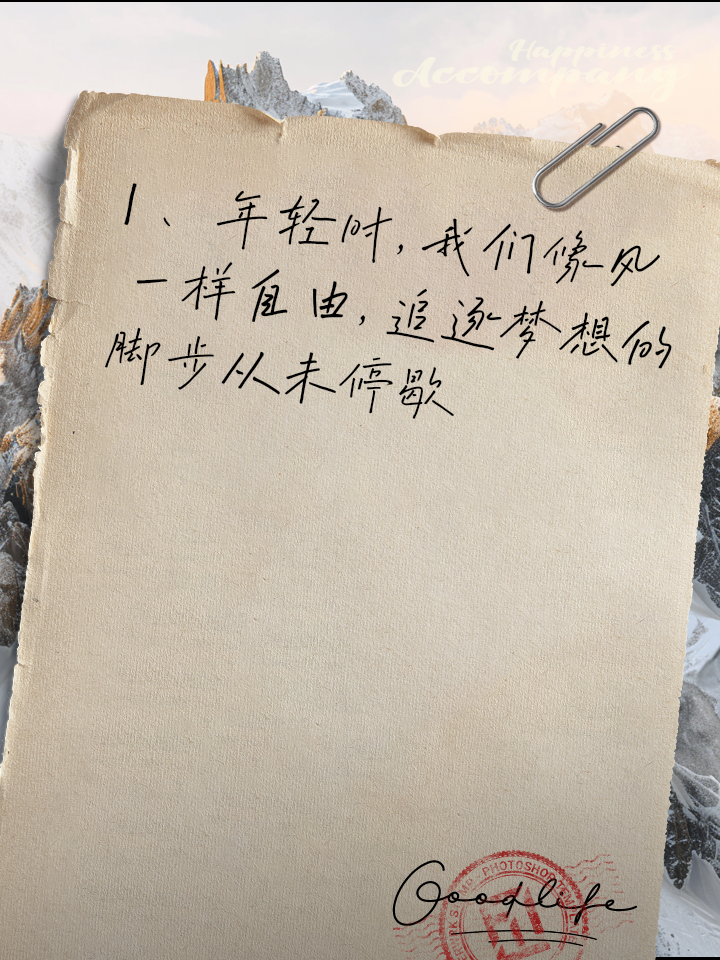 Happiness
Accompany
1、年轻时,我们像风
一样自由,追逐梦想的
脚步从未停歇
PHOTOSHOP
Goodlife